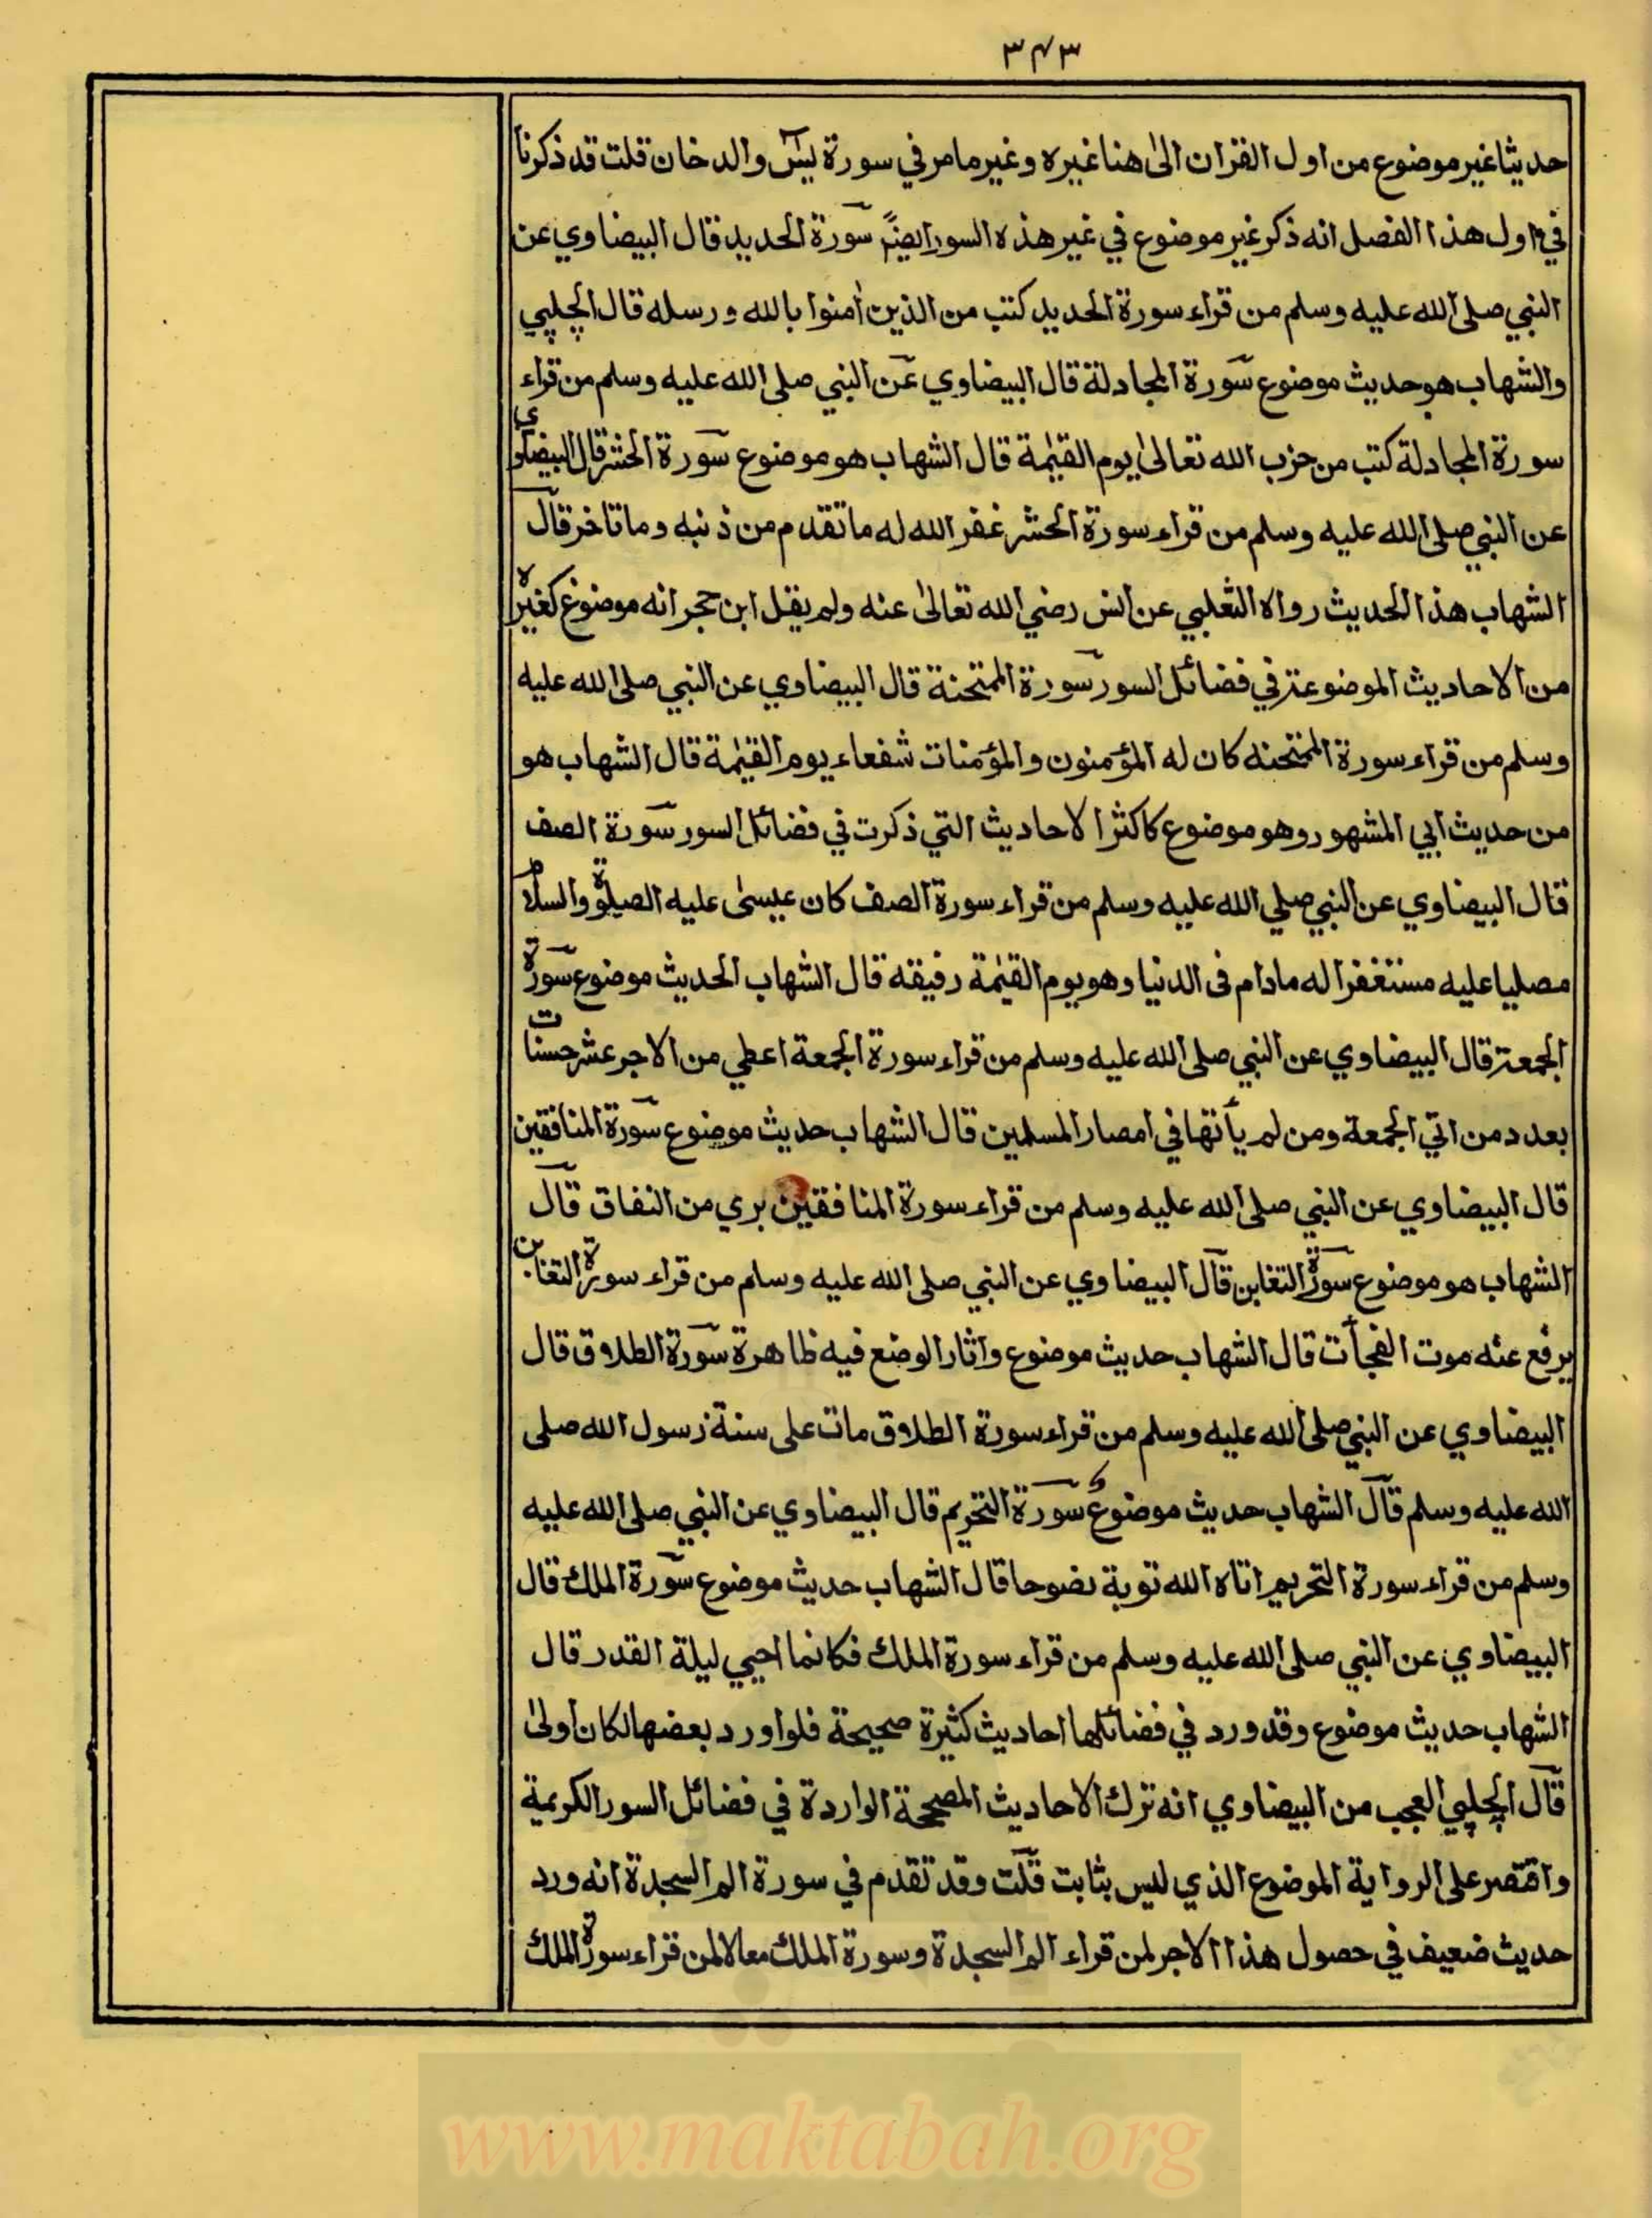 ٣٤٣
حديثا غير موضوع من اول القران الىٰ هنا غيره وغير مامر في سورة يٰسٓ والدخان قلت قد ذكرنا
في اول هذا الفصل انه ذكر غير موضوع في غير هذه السور ايضًا سورة الحديد قال البيضاوي عن
النبي صلى الله عليه وسلم من قراء سورة الحديد كتب من الذين اٰمنوا بالله ورسله قال الچلپي
والشهاب هو حديث موضوع سورة المجادلة قال البيضاوي عن النبي صلى الله عليه وسلم من قراء
سورة المجادلة كتب من حزب الله تعالىٰ يوم القيٰمة قال الشهاب هو موضوع سورة الحشر قال البيضاوي
عن النبي صلى الله عليه وسلم من قراء سورة الحشر غفر الله له ما تقدم من ذنبه وما تاخر قال
الشهاب هذا الحديث رواه الثعلبي عن انس رضي الله تعالىٰ عنه ولم يقل ابن حجر انه موضوع كغيره
من الاحاديث الموضوعة في فضائل السور سورة الممتحنة قال البيضاوي عن النبي صلى الله عليه
وسلم من قراء سورة الممتحنه كان له المؤمنون والمؤمنات شفعاء يوم القيٰمة قال الشهاب هو
من حديث ابي المشهور وهو موضوع كاكثر الاحاديث التي ذكرت في فضائل السور سورة الصف
قال البيضاوي عن النبي صلي الله عليه وسلم من قراء سورة الصف كان عيسىٰ عليه الصلوٰة والسلام
مصليا عليه مستغفرا له مادام فى الدنيا وهو يوم القيٰمة رفيقه قال الشهاب الحديث موضوع سورة
الجمعة قال البيضاوي عن النبي صلى الله عليه وسلم من قراء سورة الجمعة اعطي من الاجر عشر حسنات
بعدد من اتي الجمعة ومن لم يأتها في امصار المسلمين قال الشهاب حديث موضوع سورة المنافقين
قال البيضاوي عن النبي صلى الله عليه وسلم من قراء سورة المنافقين بري من النفاق قال
الشهاب هو موضوع سورة التغابن قال البيضاوي عن النبي صلى الله عليه وسلم من قراء سورة التغابن
يرفع عنه موت الفجأت قال الشهاب حديث موضوع واثار الوضع فيه ظاهرة سورة الطلاق قال
البيضاوي عن النبي صلى الله عليه وسلم من قراء سورة الطلاق مات على سنة رسول الله صلى
الله عليه وسلم قال الشهاب حديث موضوع سورة التحريم قال البيضاوي عن النبي صلى الله عليه
وسلم من قراء سورة التحريم اتاه الله توبة نصوحا قال الشهاب حديث موضوع سورة الملك قال
البيضاوي عن النبي صلى الله عليه وسلم من قراء سورة الملك فكانما احيي ليلة القدر قال
الشهاب حديث موضوع وقد ورد في فضائلها احاديث كثيرة صحيحة فلو اورد بعضها لكان اولىٰ
قال الچلپي العجب من البيضاوي انه ترك الاحاديث المصححة الواردة في فضائل السور الكريمة
واقتصر على الرواية الموضوع الذي ليس بثابت قلت وقد تقدم في سورة الم السجدة انه ورد
حديث ضعيف في حصول هذا الاجر لمن قراء الم السجدة وسورة الملك معا لا لمن قراء سورة الملك
www.maktabah.org